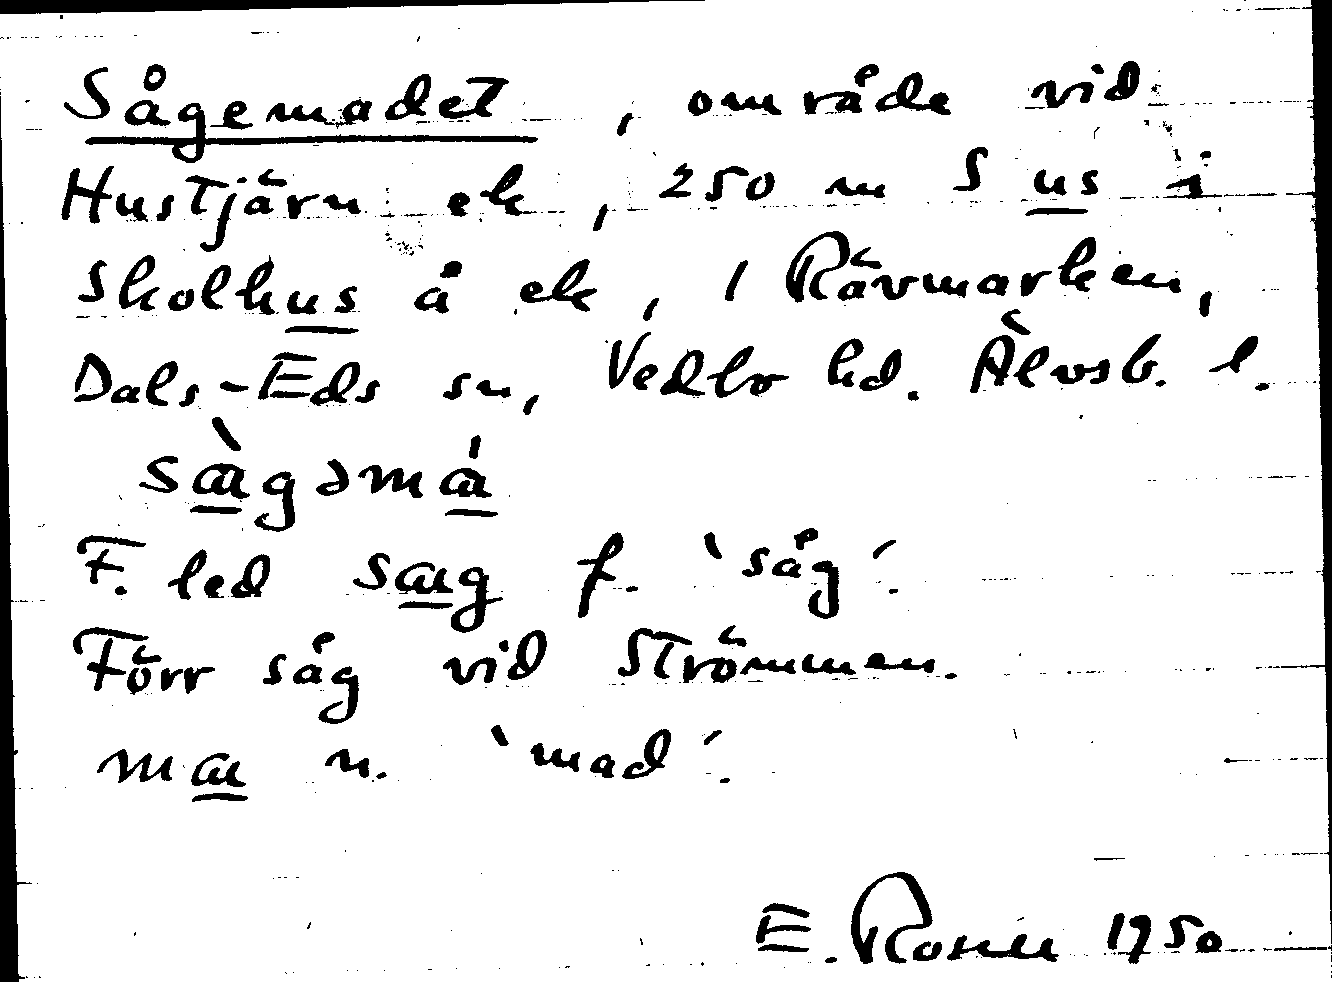 Sågemadet, område vid
Hustjärn ek, 250 m S us i
skolhus å ek, 1 Rävmarken,
Dals-Eds sn, Vedbo hd. Älvsb. l.
sàgəmá
F. led sag f. `såg´.
Förr såg vid strömmen.
ma n. `mad´.
E. Rosell 1950